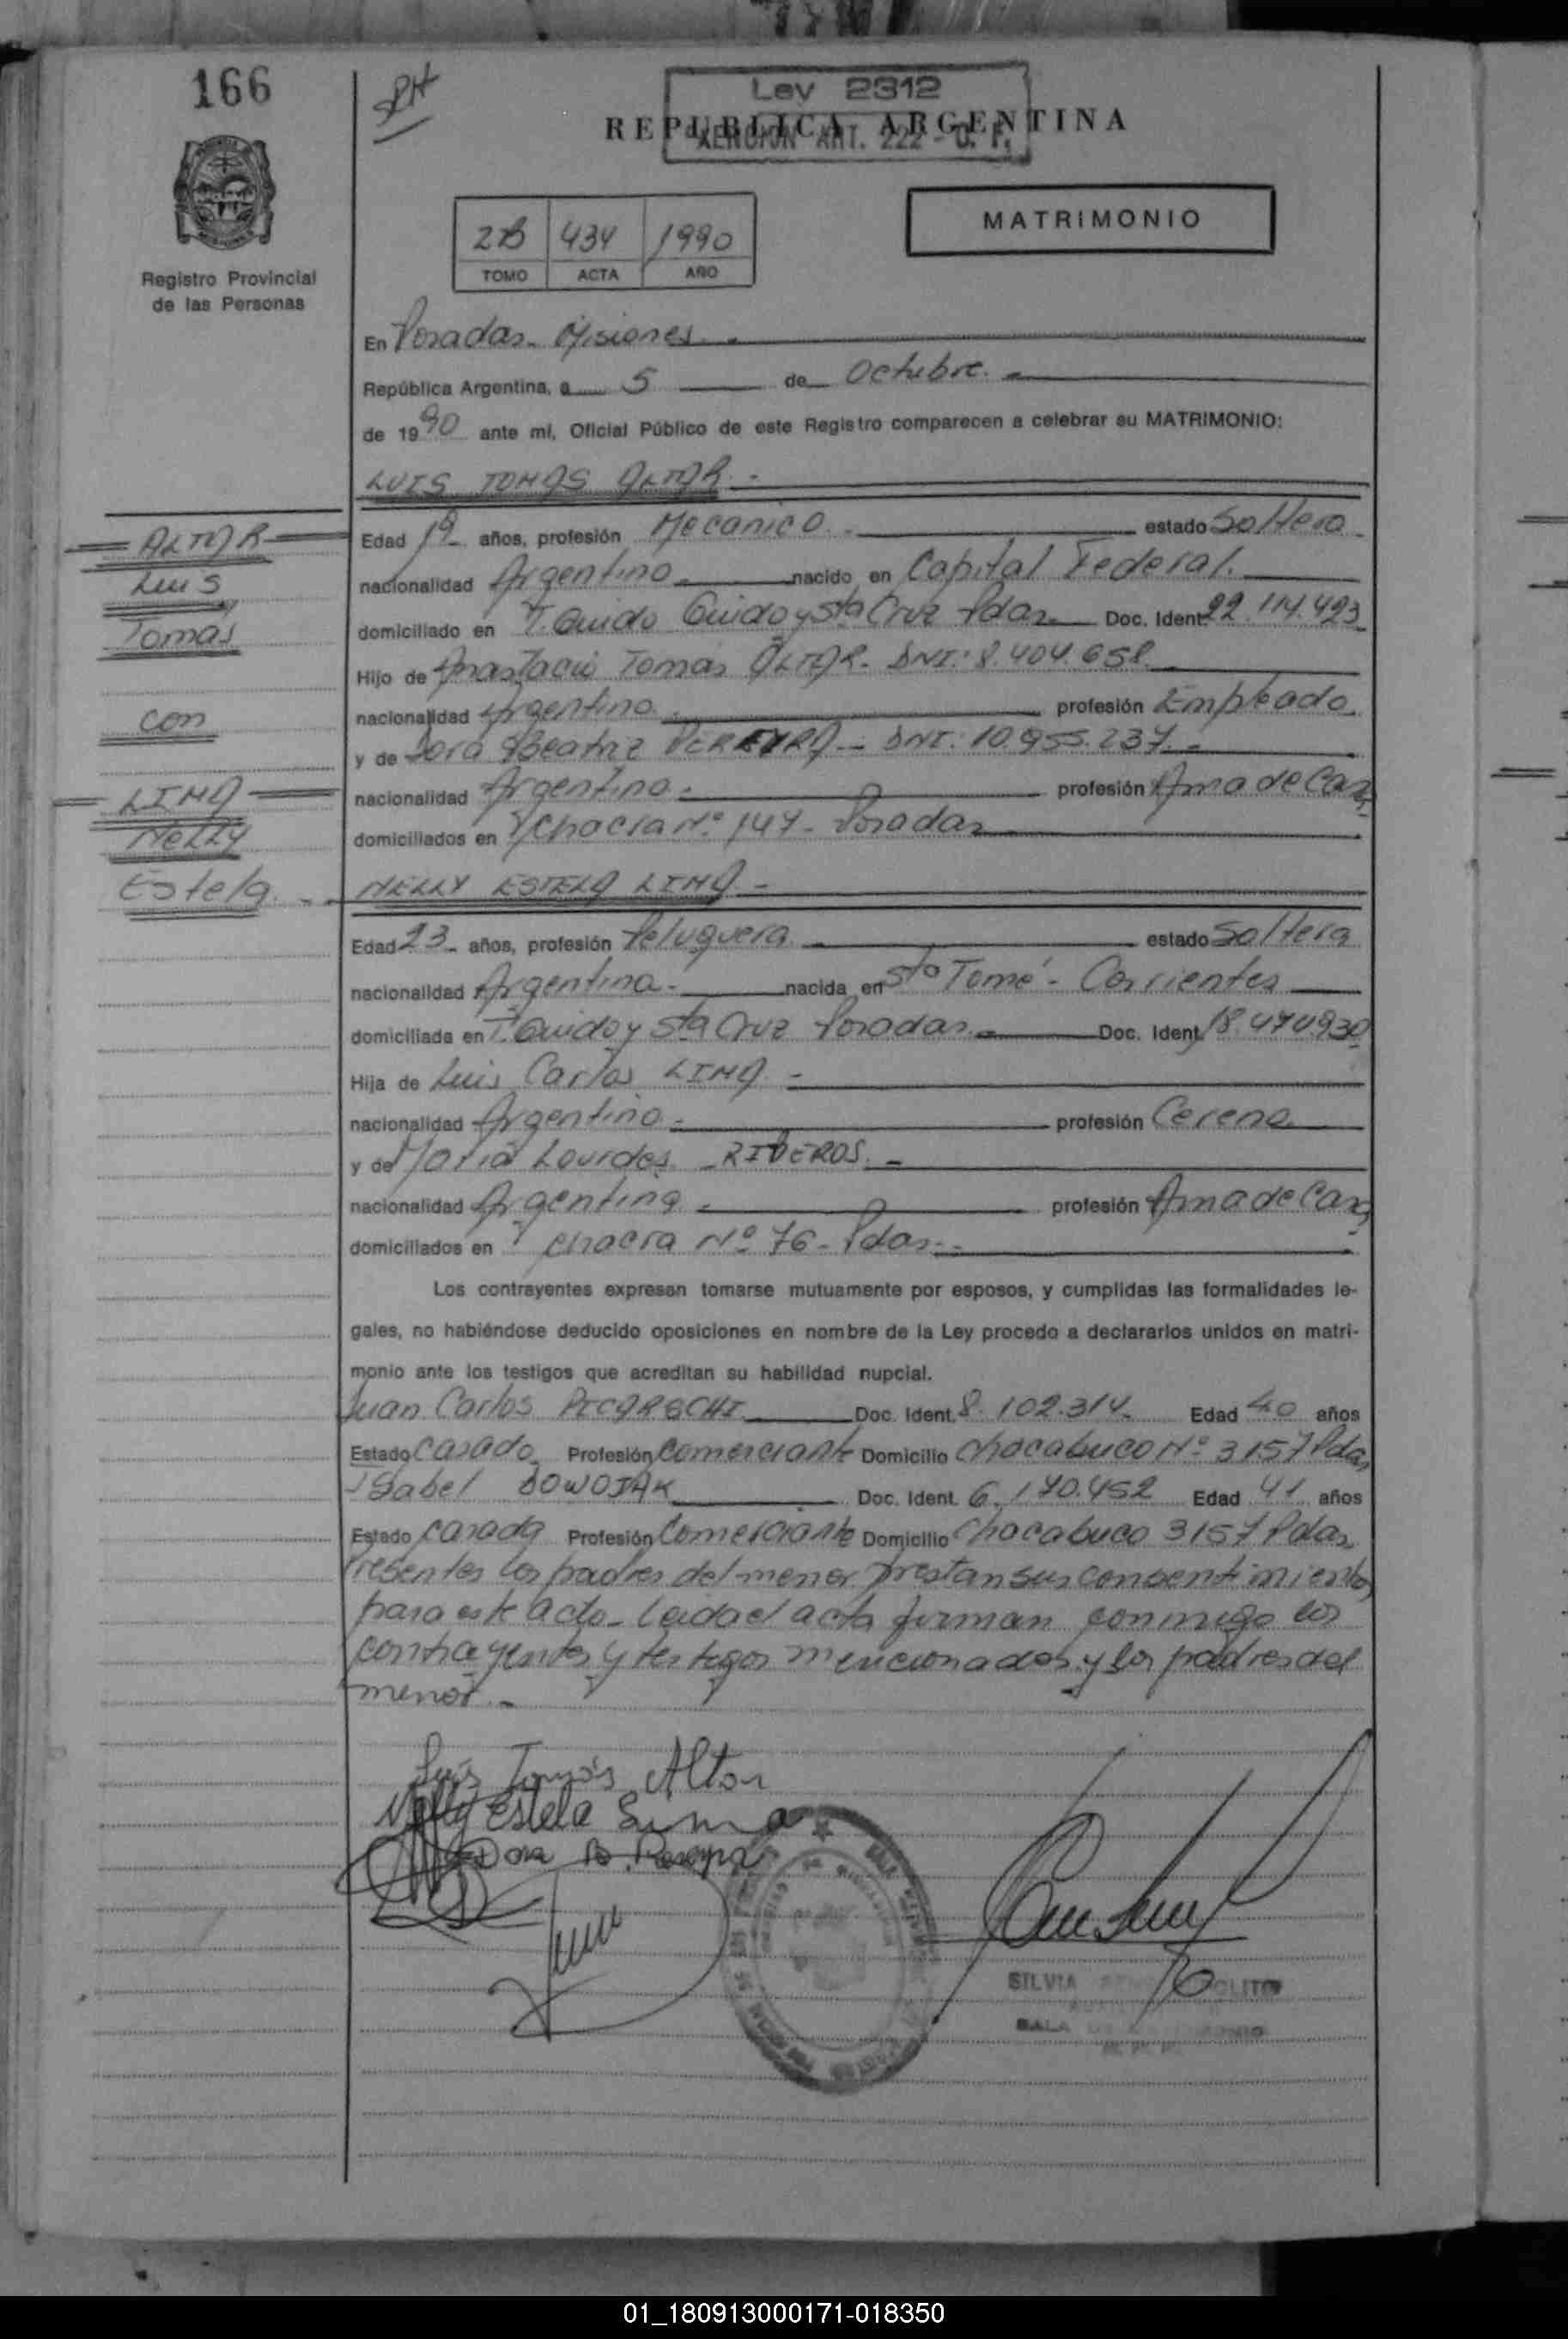 166
Ley 2312
REPUBLICA ARGENTINA
ART. 222 -
2B 434 1990
TOMO ACTA AÑO
MATRIMONIO
Registro Provincial
de las Personas
En Posadas - Misiones
República Argentina, a 5 de Octubre. -
de 1990 ante mi, Oficial Público de este Registro comparecen a celebrar su MATRIMONIO:
LUIS TOMAS ALTAR. -
ALTAR
Luis
Tomas
con
LIMA
NELLY
Estela. -
Edad 19 años, profesión Mecanico. - estado Soltero
nacionalidad Argentino nacido en Capital Federal.
domiciliado en T. Guido Guido y Sta Cruz Pdas. Doc. Ident. 22.114.493
Hijo de Anastacio Tomas ALTAR - DNI: 8.404.658.
nacionalidad Argentino. profesión Empleado
y de Dora Beatriz PEREYRA - DNI: 10.955.237. -
nacionalidad Argentina. profesión Ama de Casa
domiciliados en Chacra Nº 147 - Posadas
NELLY ESTELA LIMA -
Edad 23 años, profesión Peluquera estado Soltera
nacionalidad Argentina. nacida en Sto Tomé - Corrientes
domiciliada en T. Guido y Sta Cruz Posadas. Doc. Ident. 18.470930
Hija de Luis Carlos LIMA. -
nacionalidad Argentino. profesión
y de Maria Lourdes RIBEROS. -
nacionalidad Argentina. profesión Ama de Casa
domiciliados en Chacra Nº 76 - Pdas. -
Los contrayentes expresan tomarse mutuamente por esposos, y cumplidas las formalidades le-
gales, no habiéndose deducido oposiciones en nombre de la Ley procedo a declararlos unidos en matri-
monio ante los testigos que acreditan su habilidad nupcial.
Juan Carlos Doc. Ident. 8.102.314. Edad 40 años
Estado Casado Profesión Comerciante Domicilio Chacabuco Nº 3157 Pdas
Isabel BOWOJAK Doc. Ident. 6.170.452 Edad 41 años
Estado Casada Profesión Comerciante Domicilio Chacabuco 3157 Pdas.
Presentes los padres del menor prestan sus consentimientos
para este acto - Leida el acta firman conmigo los
contrayentes y testigos mencionados y los padres del
menor. -
Luis Tomás Altar
Nelly Estela Lima
Dora B. Pereyra
SILVIA
SALA
01_180913000171-018350